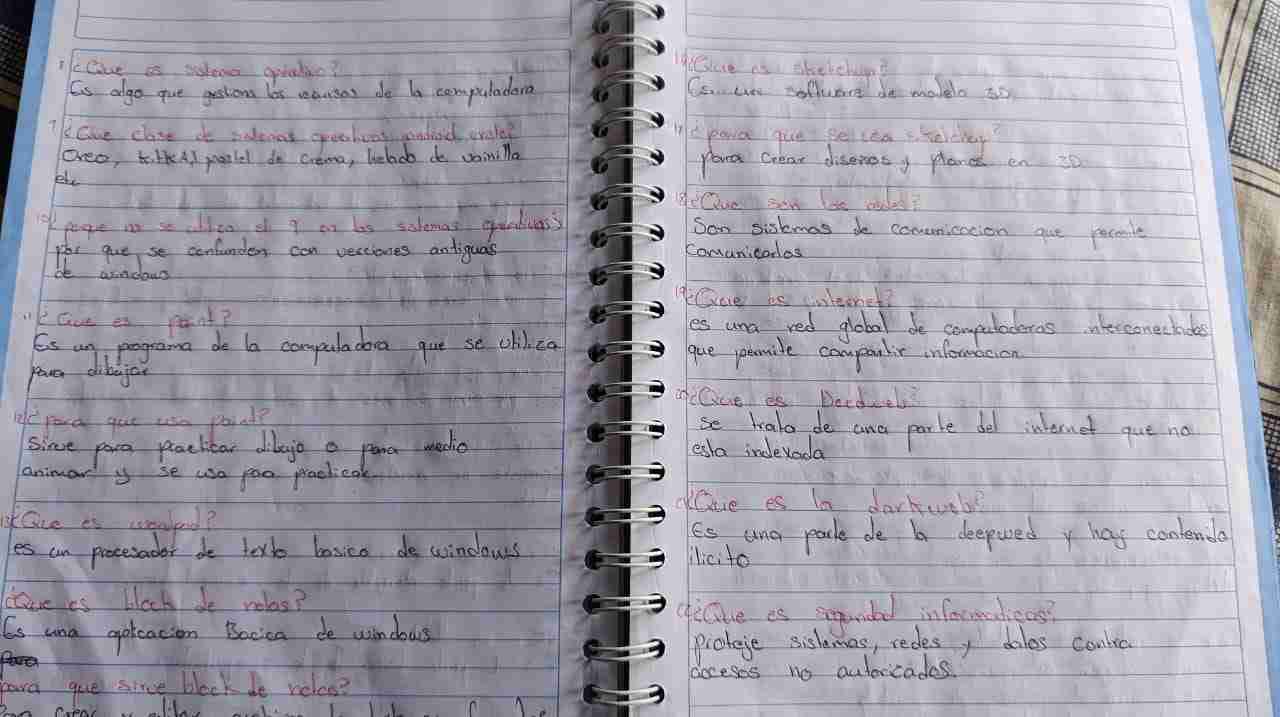 8 ¿Que es sistema operativo?
Es algo que gestiona los de la computadora
9 ¿Que clase de sistemas operativos android existe?
Oreo, KitKat, pastel de crema, helado de vainilla
etc
10 ¿porque no se utiliza el 9 en los sistemas operativos?
por que se confunden con verciones antiguas
de windows
11 ¿Que es paint?
Es un programa de la computadora que se utiliza
para dibujar
12 ¿para que usa paint?
Sirve para practicar dibujo o para medio
animar y se usa paa practicar
13 ¿Que es wordpad?
es un procesador de texto basico de windows
¿Que es block de notas?
Es una aplcacion Bacica de windows
para
para que sirve block de notas?
crear y editar
16 ¿Que es sketchup?
Es un software de modelo 3D
17 ¿para que se usa
para crear diseños y planos en 3D
18 ¿Que son las redes?
Son sistemas de comunicacion que permite
comunicarlos
19 ¿Que es internet?
es una red global de computadoras interconectadas
que permite compartir informacion
20 ¿Que es Deedweb?
se trata de una parte del internet que no
esta indexada
¿Que es la darkweb?
Es una parte de la deepwed y hay contenido
ilicito
¿Que es seguridad informaticas?
proteje sistemas, redes y datos contra
accesos no autoricados.